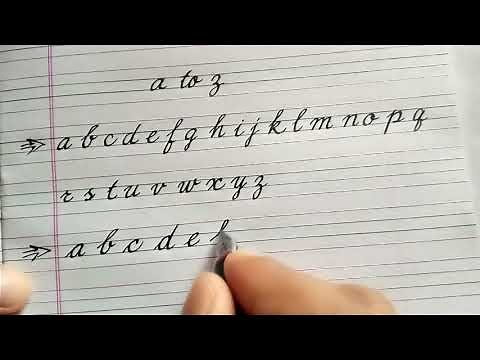 a to z
a b c d e f g h i j k l m n o p q
r s t u v w x y z
a b c d e f